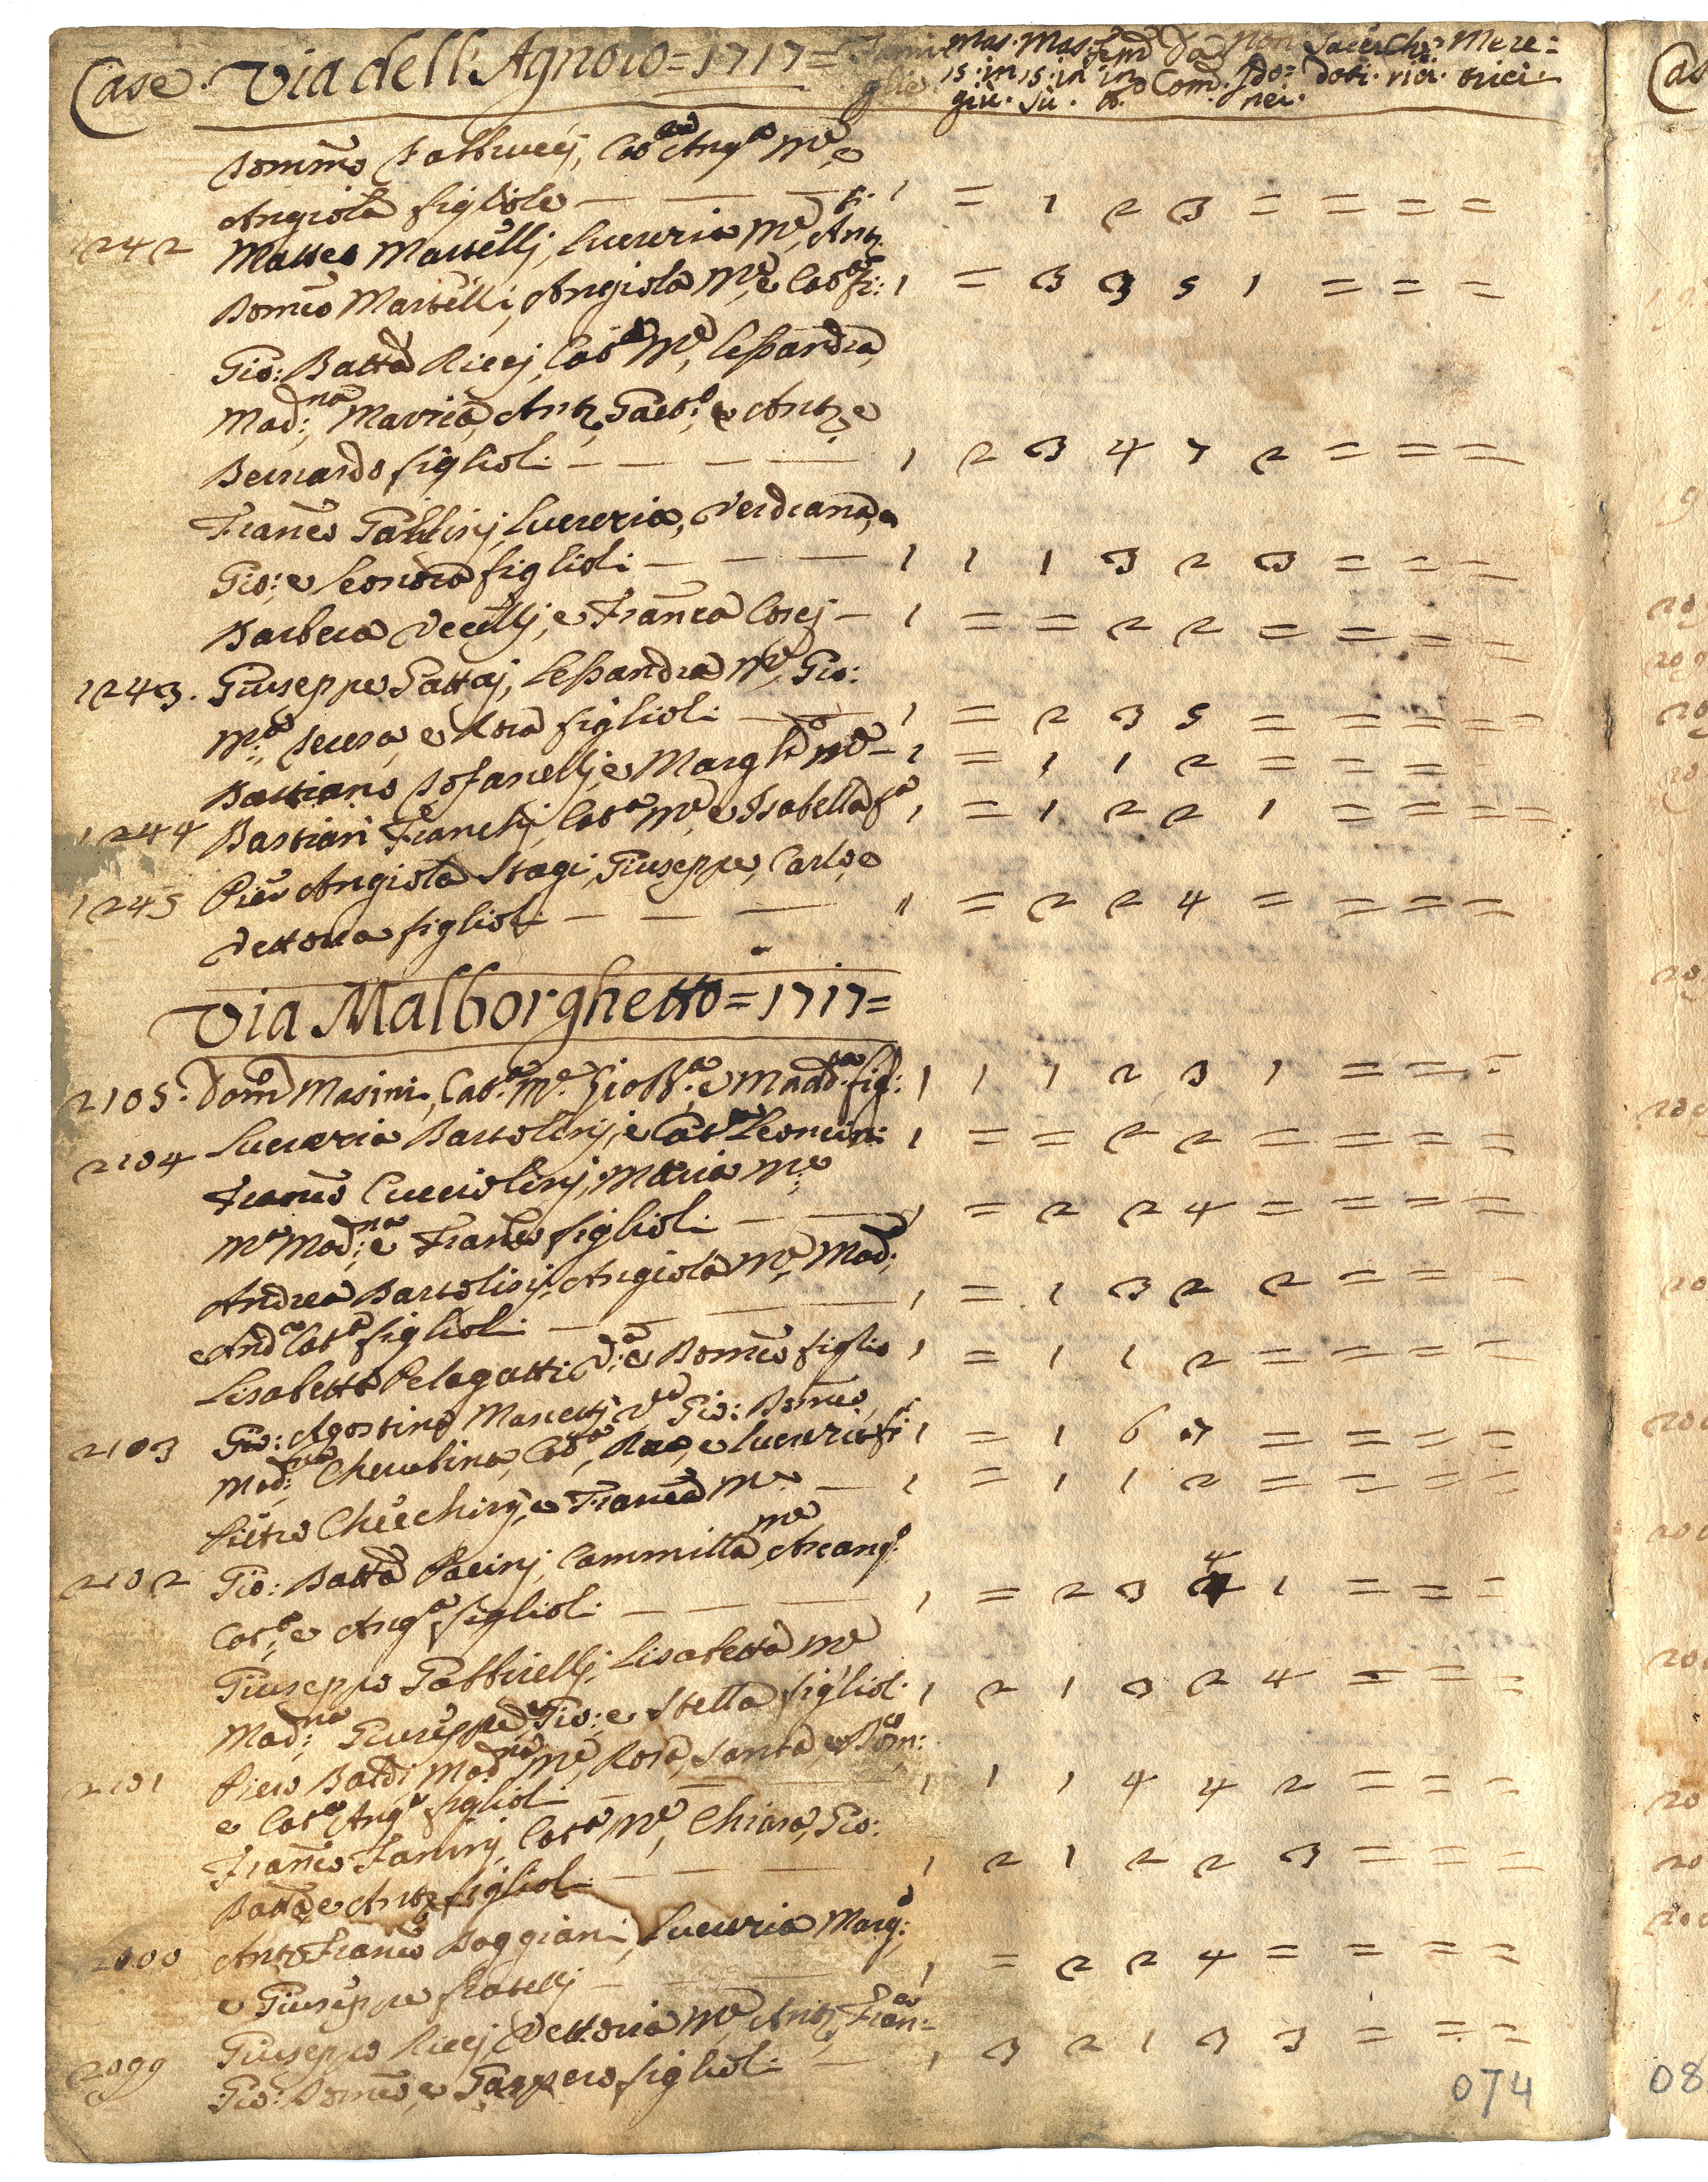 Case. Via dell'Agnolo = 1717 = Fami Mas. Mas. Fem Da Non Sacer Che Mere =
glie 15 in 15 in in Com. Ido= doti. rici. trici.
giù. sù. nei.
Domco Fabbrucci, Cata Anga Me, e
Angiola figliole — — — 1 = 1 2 3 = = = =
1242 Matteo Martelli, Lucrezia Me, Anto
Domco Martelli, Angiola Me, e Cata fi: 1 = 3 3 5 1 = = =
Gio: Batta Ricci, Cata Me, Lessandra,
Mad:na Maria, Anto, Gaeto: e Anto e
Bernardo figlioli — — — — 1 2 3 4 7 2 = = =
Franco Gallini, Lucrezia, Verdiana,
Gio: e Leonora figlioli — — — 1 1 1 3 2 3 = = =
Barbera Vecelli, e Franca Corsi — 1 = = 2 2 = = = =
1243. Giuseppe Gattai, Lessandra Me, Gio:
Ma: Teresa, e Rosa figlioli — — 1 = 2 3 5 = = = =
Bastiano Tofanelli, e Marghta Me — 1 = 1 1 2 = = =
1244 Bastian Franchi, Cata Me, e Isabella fa 1 = 1 2 2 1 = = = =
1245 Pier Angiola Stagi, Giuseppe, Carlo, e
Vettoria figlioli — — — 1 = 2 2 4 = = = =
Via Malborghetto = 1717 =
2105. Domco Masini, Cata. Me. Gio Ba: e Madd:na fig: 1 1 1 2 3 1 = = =
2104 Lucrezia Bartolini, e Cata Leoncini 1 = = 2 2 = = = =
Franco Cucciolini, Maria Me;
Ma Mad:na e Franco figlioli — — 1 = 2 2 4 = = = =
Andrea Bartolini, Angiola Me, Mad:
e Anda Cata figlioli — — — 1 = 1 3 2 2 = = =
Lisabetta Pelagatti Va: e Domco figlio 1 = 1 1 2 = = = =
2103 Gio: Agostino Mancetti Vo Gio: Domco,
Mad:na Cherubina, Cata, Rosa, e Lucrezia fi 1 = 1 6 7 = = = =
Pietro Checchini, e Franca Me — 1 = 1 1 2 = = = =
2102 Gio: Batta Pacini, Cammilla Me, Arcango:
Cata: e Anga figlioli — — — 1 = 2 3 4 1 = = =
Giuseppe Gabbrielli, Lisabetta Me
Mad:na Giuseppe, Gio: e Stella figliol. 1 2 1 3 2 4 = = =
2101 Piero Baldi, Madna Me, Rosa, Santa, e Dom:co
e Cata Anga figlioli — — 1 1 1 4 4 2 = = =
Franco Fanini, Cata Me, Chiara, Gio:
Batta e Anto figlioli — — — 1 2 1 2 2 3 = = =
2100 Anto Franco Boggiani, Lucrezia Marga:
e Giuseppe fratelli — — 1 = 2 2 4 = = = =
2099 Giuseppe Ricci, Vettoria Me, Anto, Fran:co
Gio: Domco, e Gasperо figlioli — 1 3 2 1 3 3 = = =
074
08